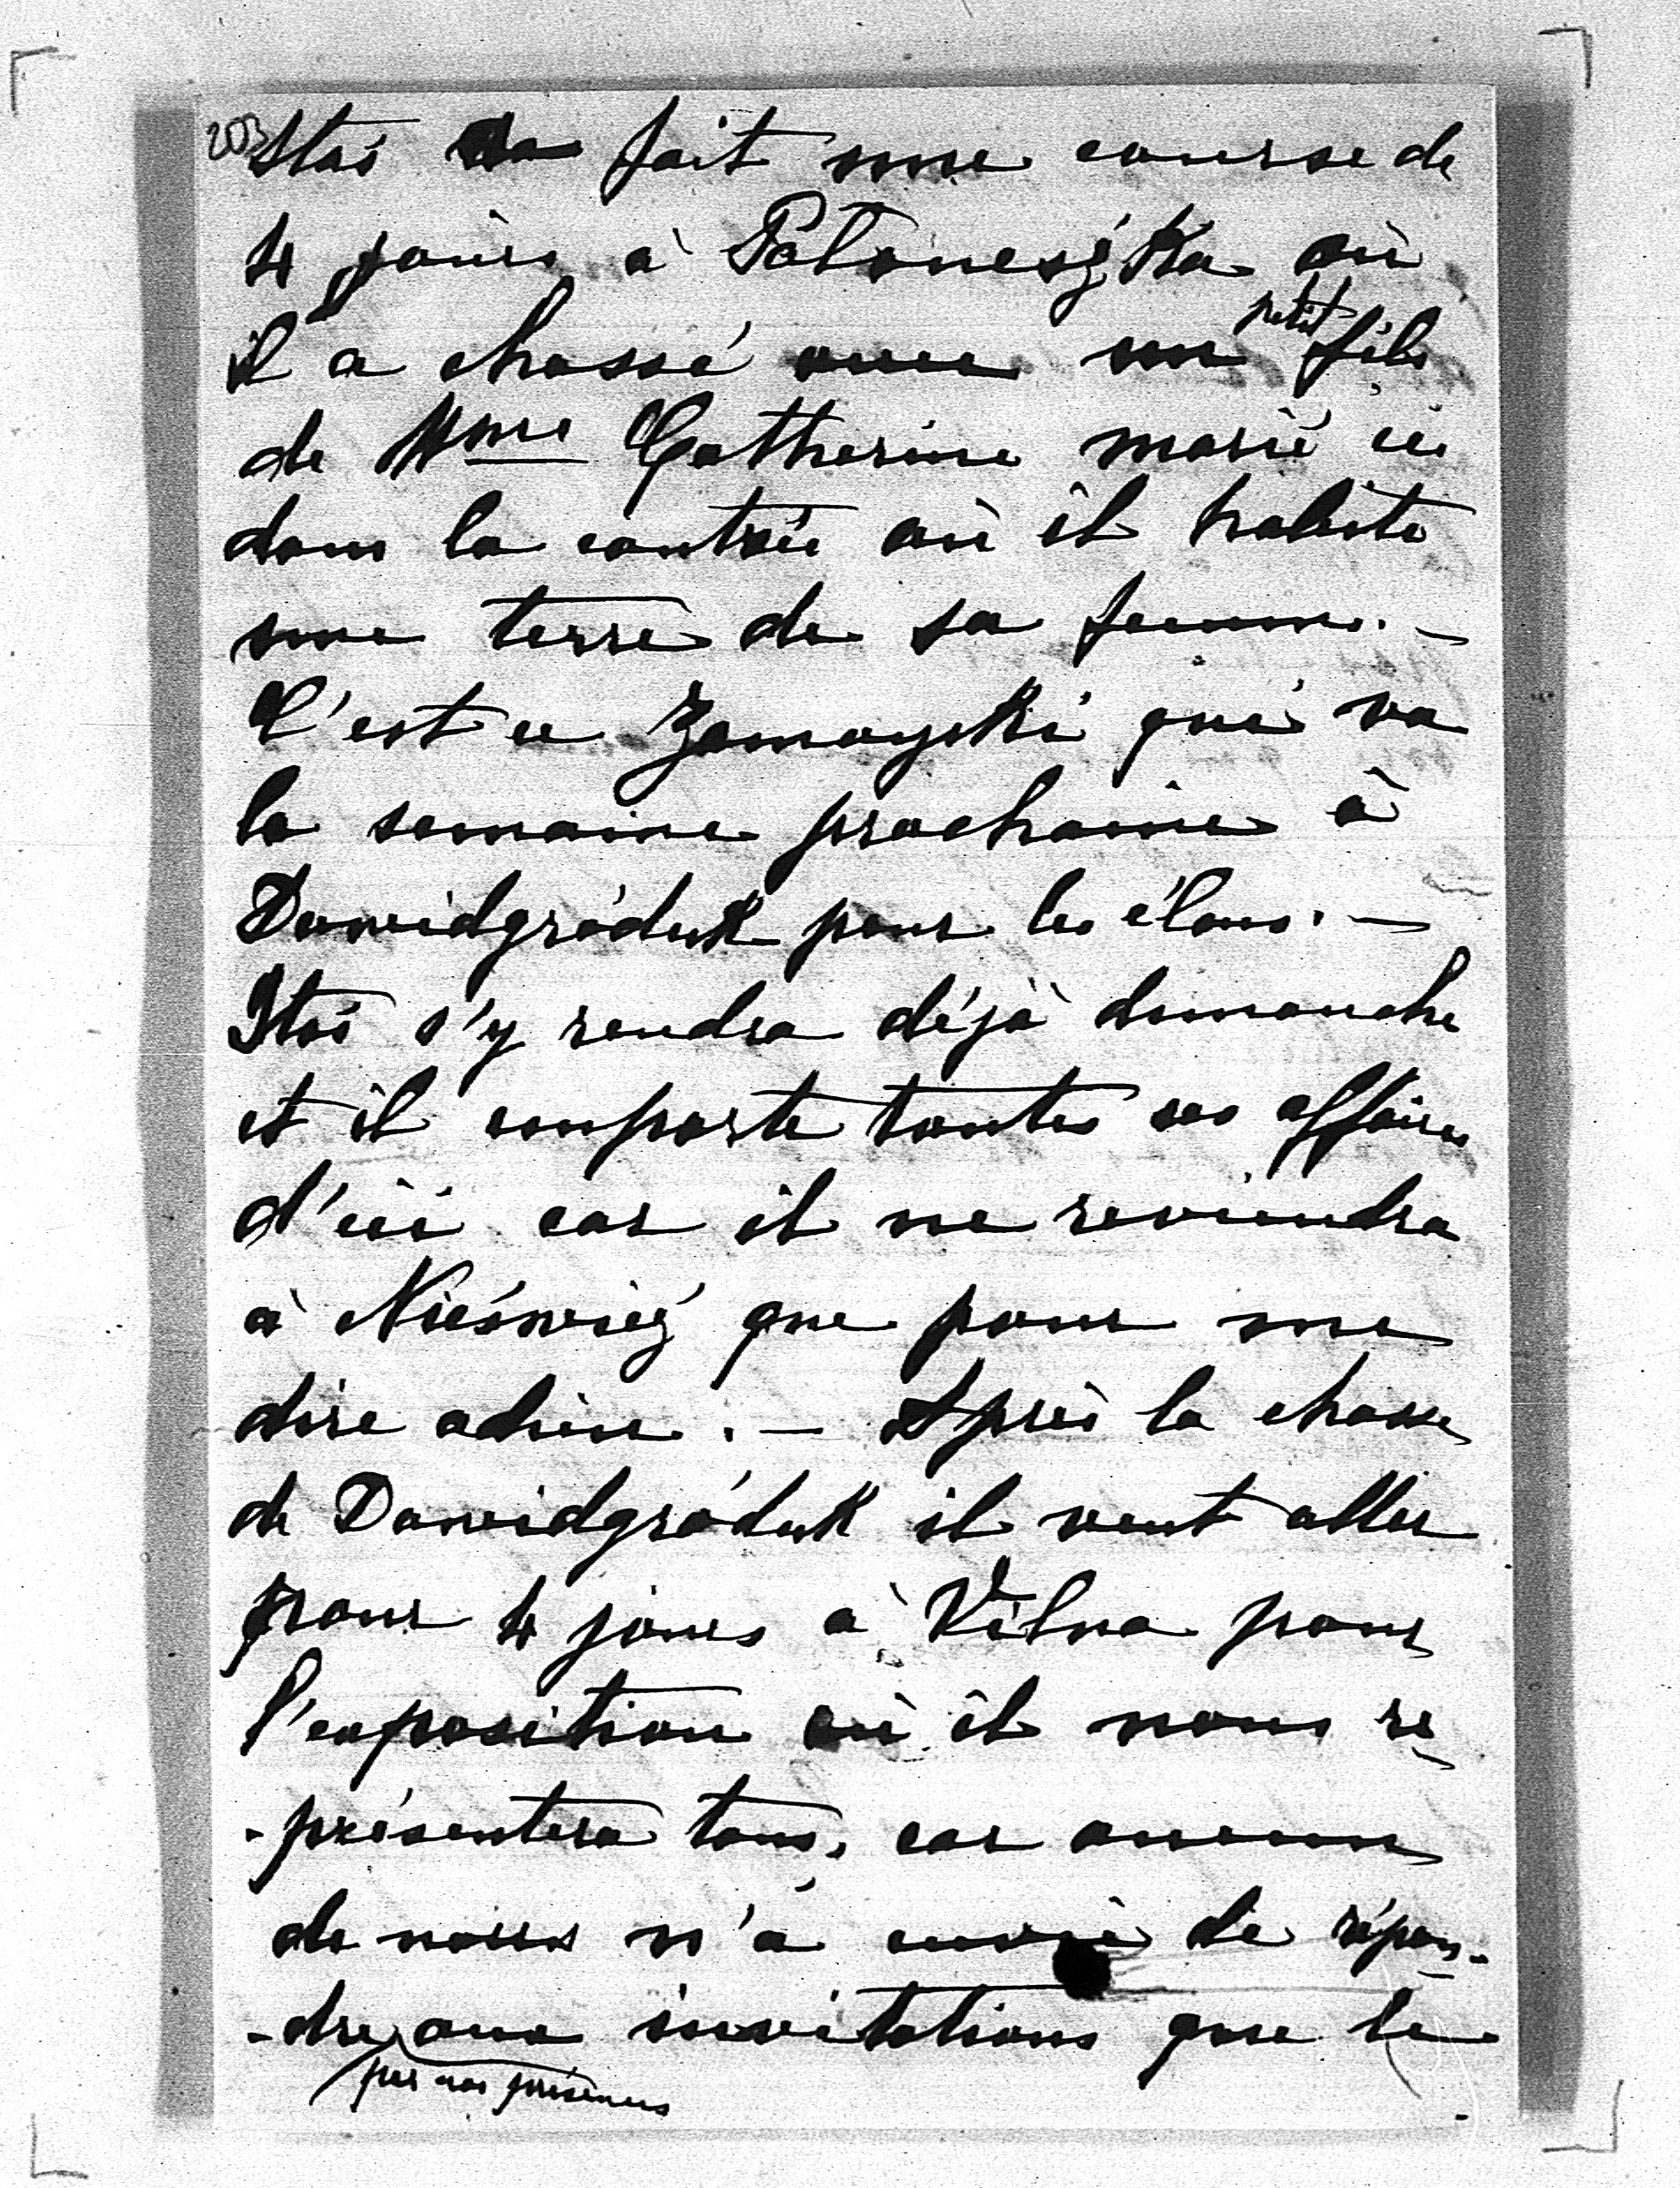 203
Staś a fait une course de
4 jours à Potoneszka où
il a chassé avec un petit fils
de Mme Catherine marié ici
dans la contrée où il habite
une terre de sa femme. —
C'est ce Zamoyski qui va
la semaine prochaine à
Dawidgródek pour les élans. —
Staś s'y rendra déjà dimanche
et il emporte toutes ses affaires
d'ici car il ne reviendra
à Nieśwież que pour me
dire adieu. — Après la chasse
de Dawidgródek il veut aller
pour 4 jours à Vilna pour
l'exposition où il nous re
-présentera tous, car aucun
de nous n'a envie de répon-
-dre aux invitations que le
par nos présences